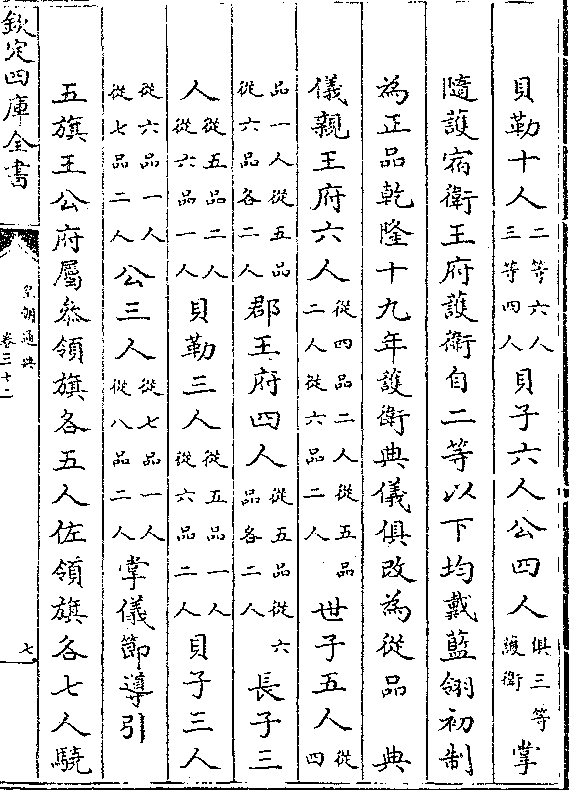 貝勒十人二等六人三等四人貝子六人公四人俱三等護衛掌
隨護宿衛王府護衛自二等以下均戴藍翎初制
為正品乾隆十九年護衛典儀俱改為從品　典
儀親王府六人從四品二人從五品二人從六品二人世子五人從四
品一人從五品從六品各二人郡王府四人從五品從六品各二人長子三
人從五品二人從六品一人貝勒三人從五品一人從六品二人貝子三人
從六品一人從七品二人公三人從七品一人從八品二人掌儀節導引
五旗王公府屬叅領旗各五人佐領旗各七人驍
欽定四庫全書
皇朝通典
卷三十二
七